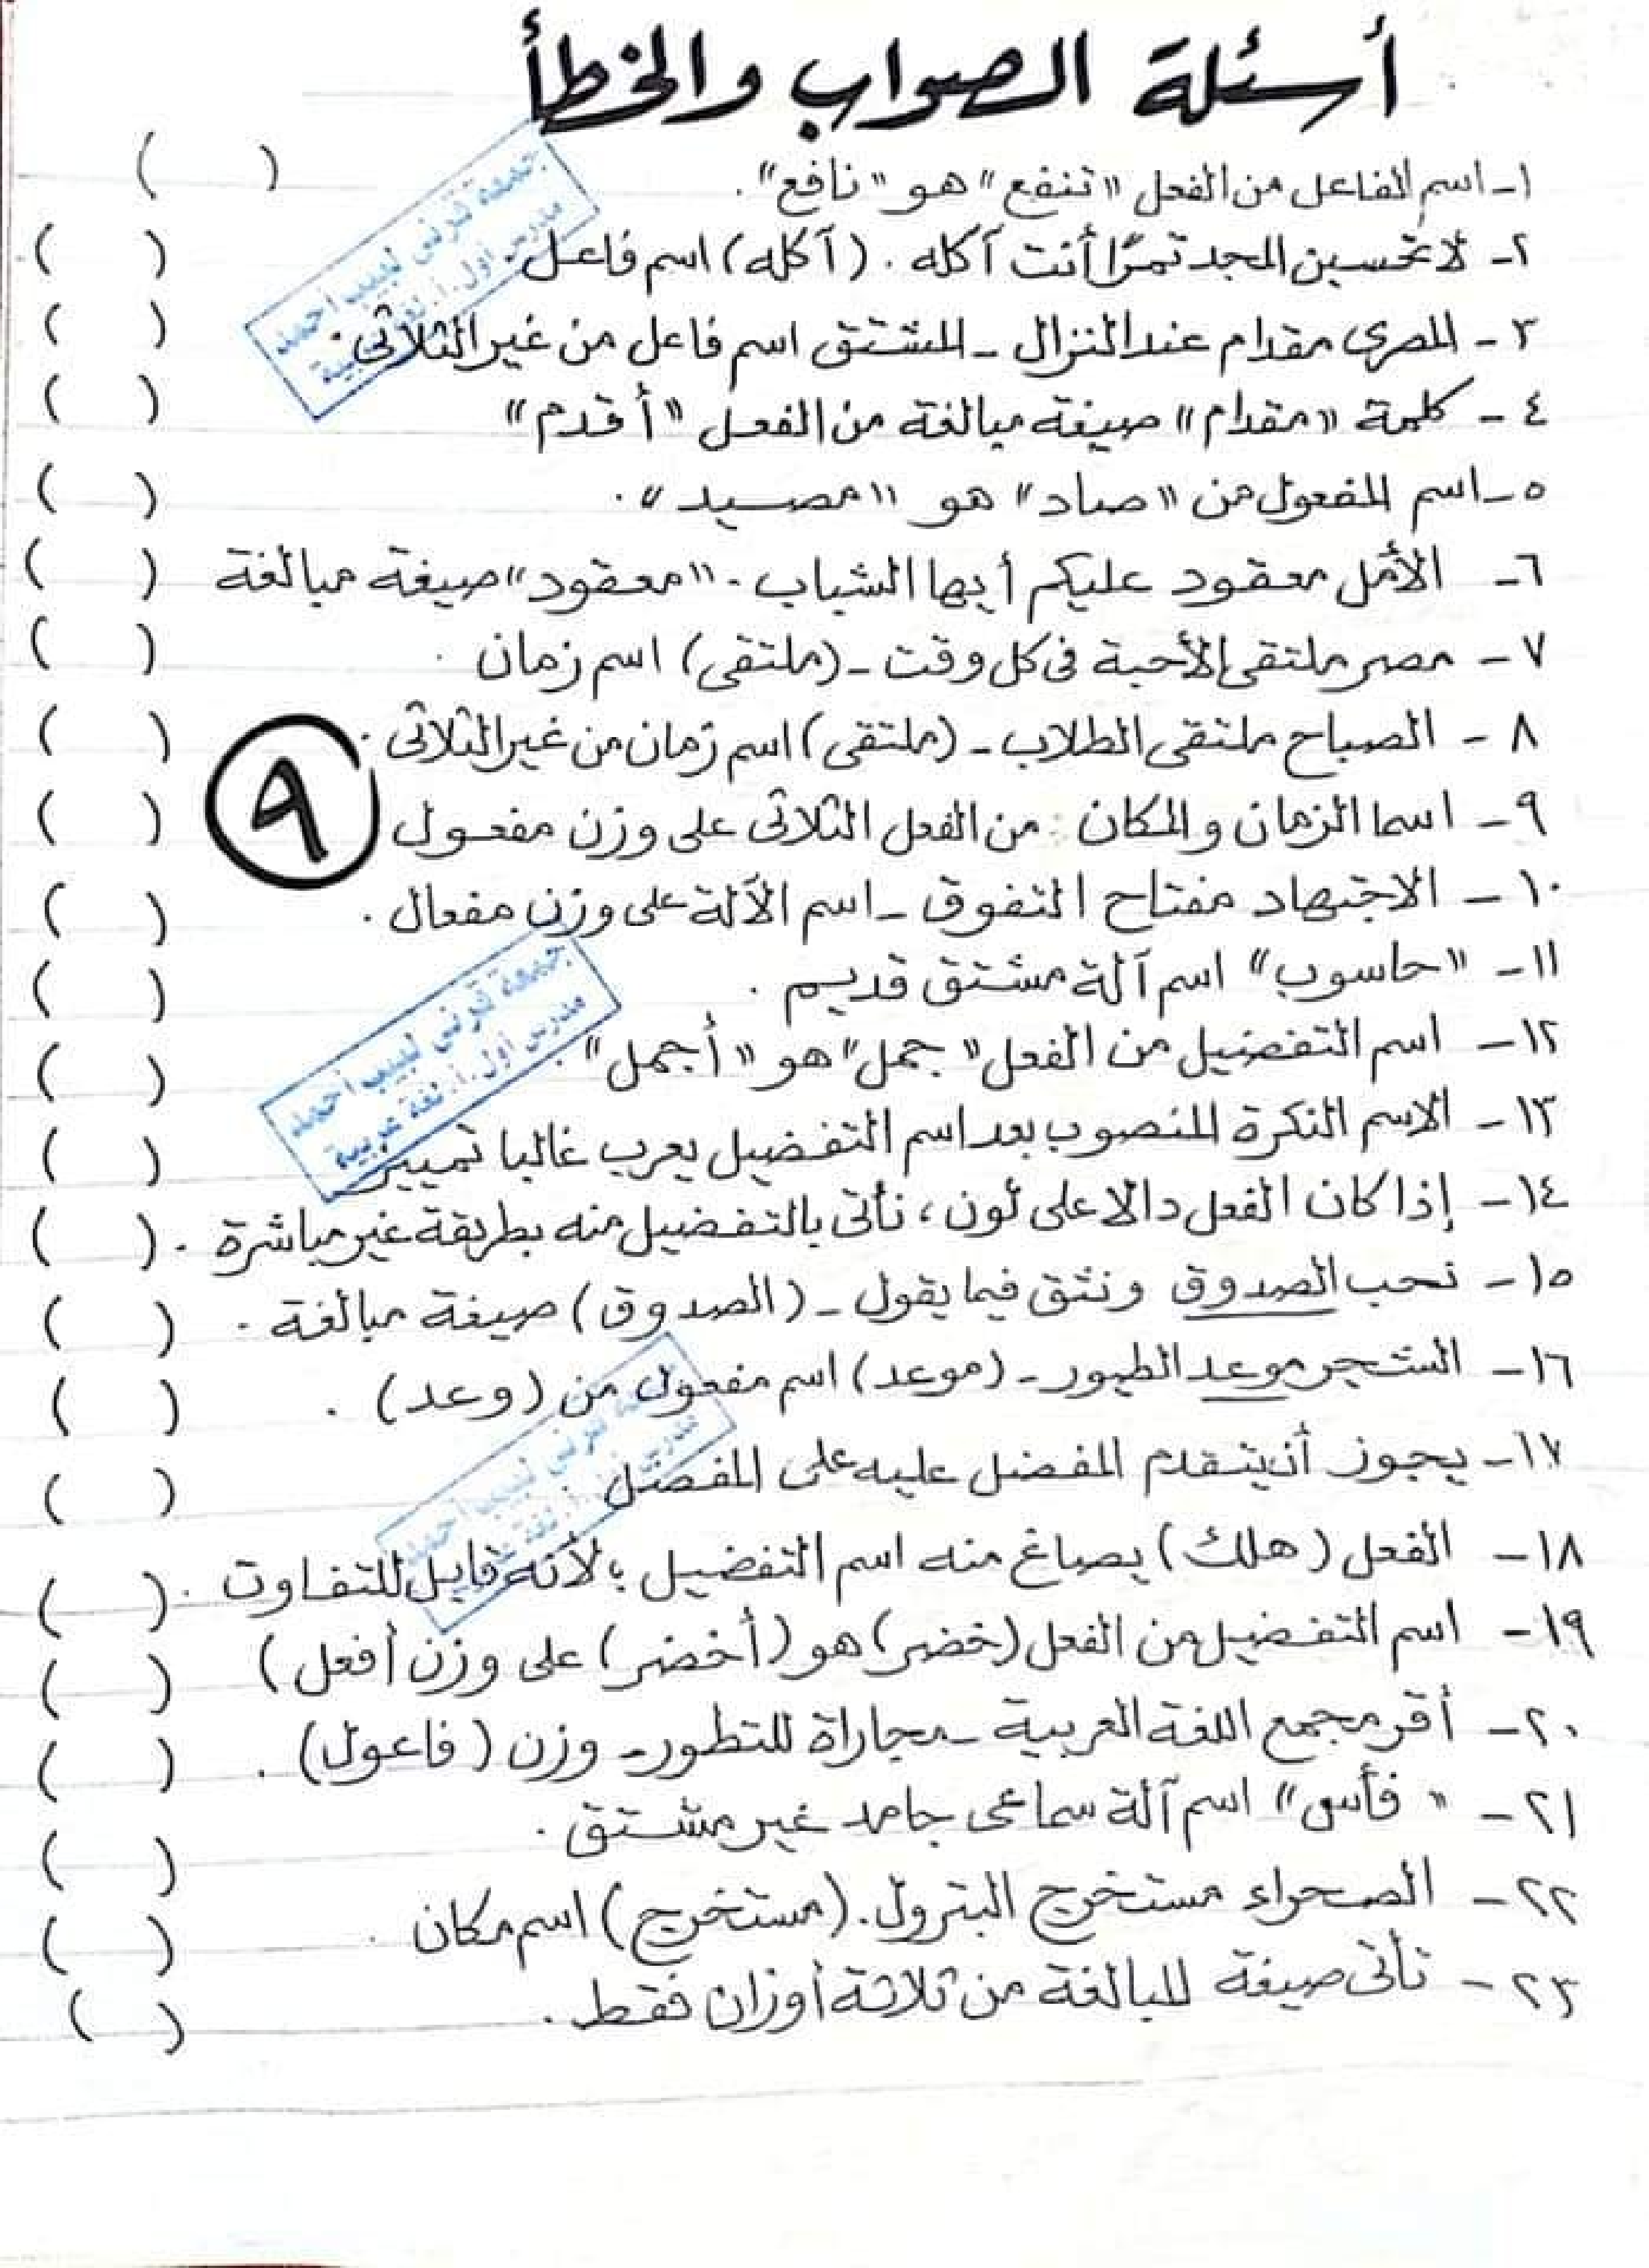 أسئلة الصواب والخطأ
١- اسم الفاعل من الفعل "تنفع" هو "نافع". ( )
٢- لا تحسبن المجد تمرًا أنت آكله. (آكله) اسم فاعل. ( )
٣- المصرى مقدام عند النزال - المشتق اسم فاعل من غير الثلاثى. ( )
٤- كلمة "مقدام" صيغة مبالغة من الفعل "أقدم" ( )
٥- اسم المفعول من "صاد" هو "مصيد". ( )
٦- الأمل معقود عليكم أيها الشباب - "معقود" صيغة مبالغة ( )
٧- مصر ملتقى الأحبة فى كل وقت - (ملتقى) اسم زمان. ( )
٨- الصباح ملتقى الطلاب - (ملتقى) اسم زمان من غير الثلاثى. ( )
٩- اسما الزمان والمكان من الفعل الثلاثى على وزن مفعول ( )
٩
١٠- الاجتهاد مفتاح التفوق - اسم الآلة على وزن مفعال. ( )
١١- "حاسوب" اسم آلة مشتق قديم. ( )
١٢- اسم التفضيل من الفعل "جمل" هو "أجمل". ( )
١٣- الاسم النكرة المنصوب بعد اسم التفضيل يعرب غالبا تمييز ( )
١٤- إذا كان الفعل دالا على لون، نأتى بالتفضيل منه بطريقة غير مباشرة. ( )
١٥- نحب الصدوق ونثق فيما يقول - (الصدوق) صيغة مبالغة. ( )
١٦- الشجر موعد الطيور - (موعد) اسم مفعول من (وعد). ( )
١٧- يجوز أن يتقدم المفضل عليه على المفضل. ( )
١٨- الفعل (هلك) يصاغ منه اسم التفضيل؛ لأنه قابل للتفاوت. ( )
١٩- اسم التفضيل من الفعل (خضر) هو (أخضر) على وزن أفعل) ( )
٢٠- أقر مجمع اللغة العربية - مجاراة للتطور - وزن (فاعول). ( )
٢١- "فأس" اسم آلة سماعى جامد غير مشتق. ( )
٢٢- الصحراء مستخرج البترول. (مستخرج) اسم مكان. ( )
٢٣- تأتى صيغة المبالغة من ثلاثة أوزان فقط. ( )
جمعة قرنى لبيب أحمد
مدرس أول.أ. لغة عربية
جمعة قرنى لبيب أحمد
مدرس أول.أ. لغة عربية
قرنى لبيب أحمد
مدرس